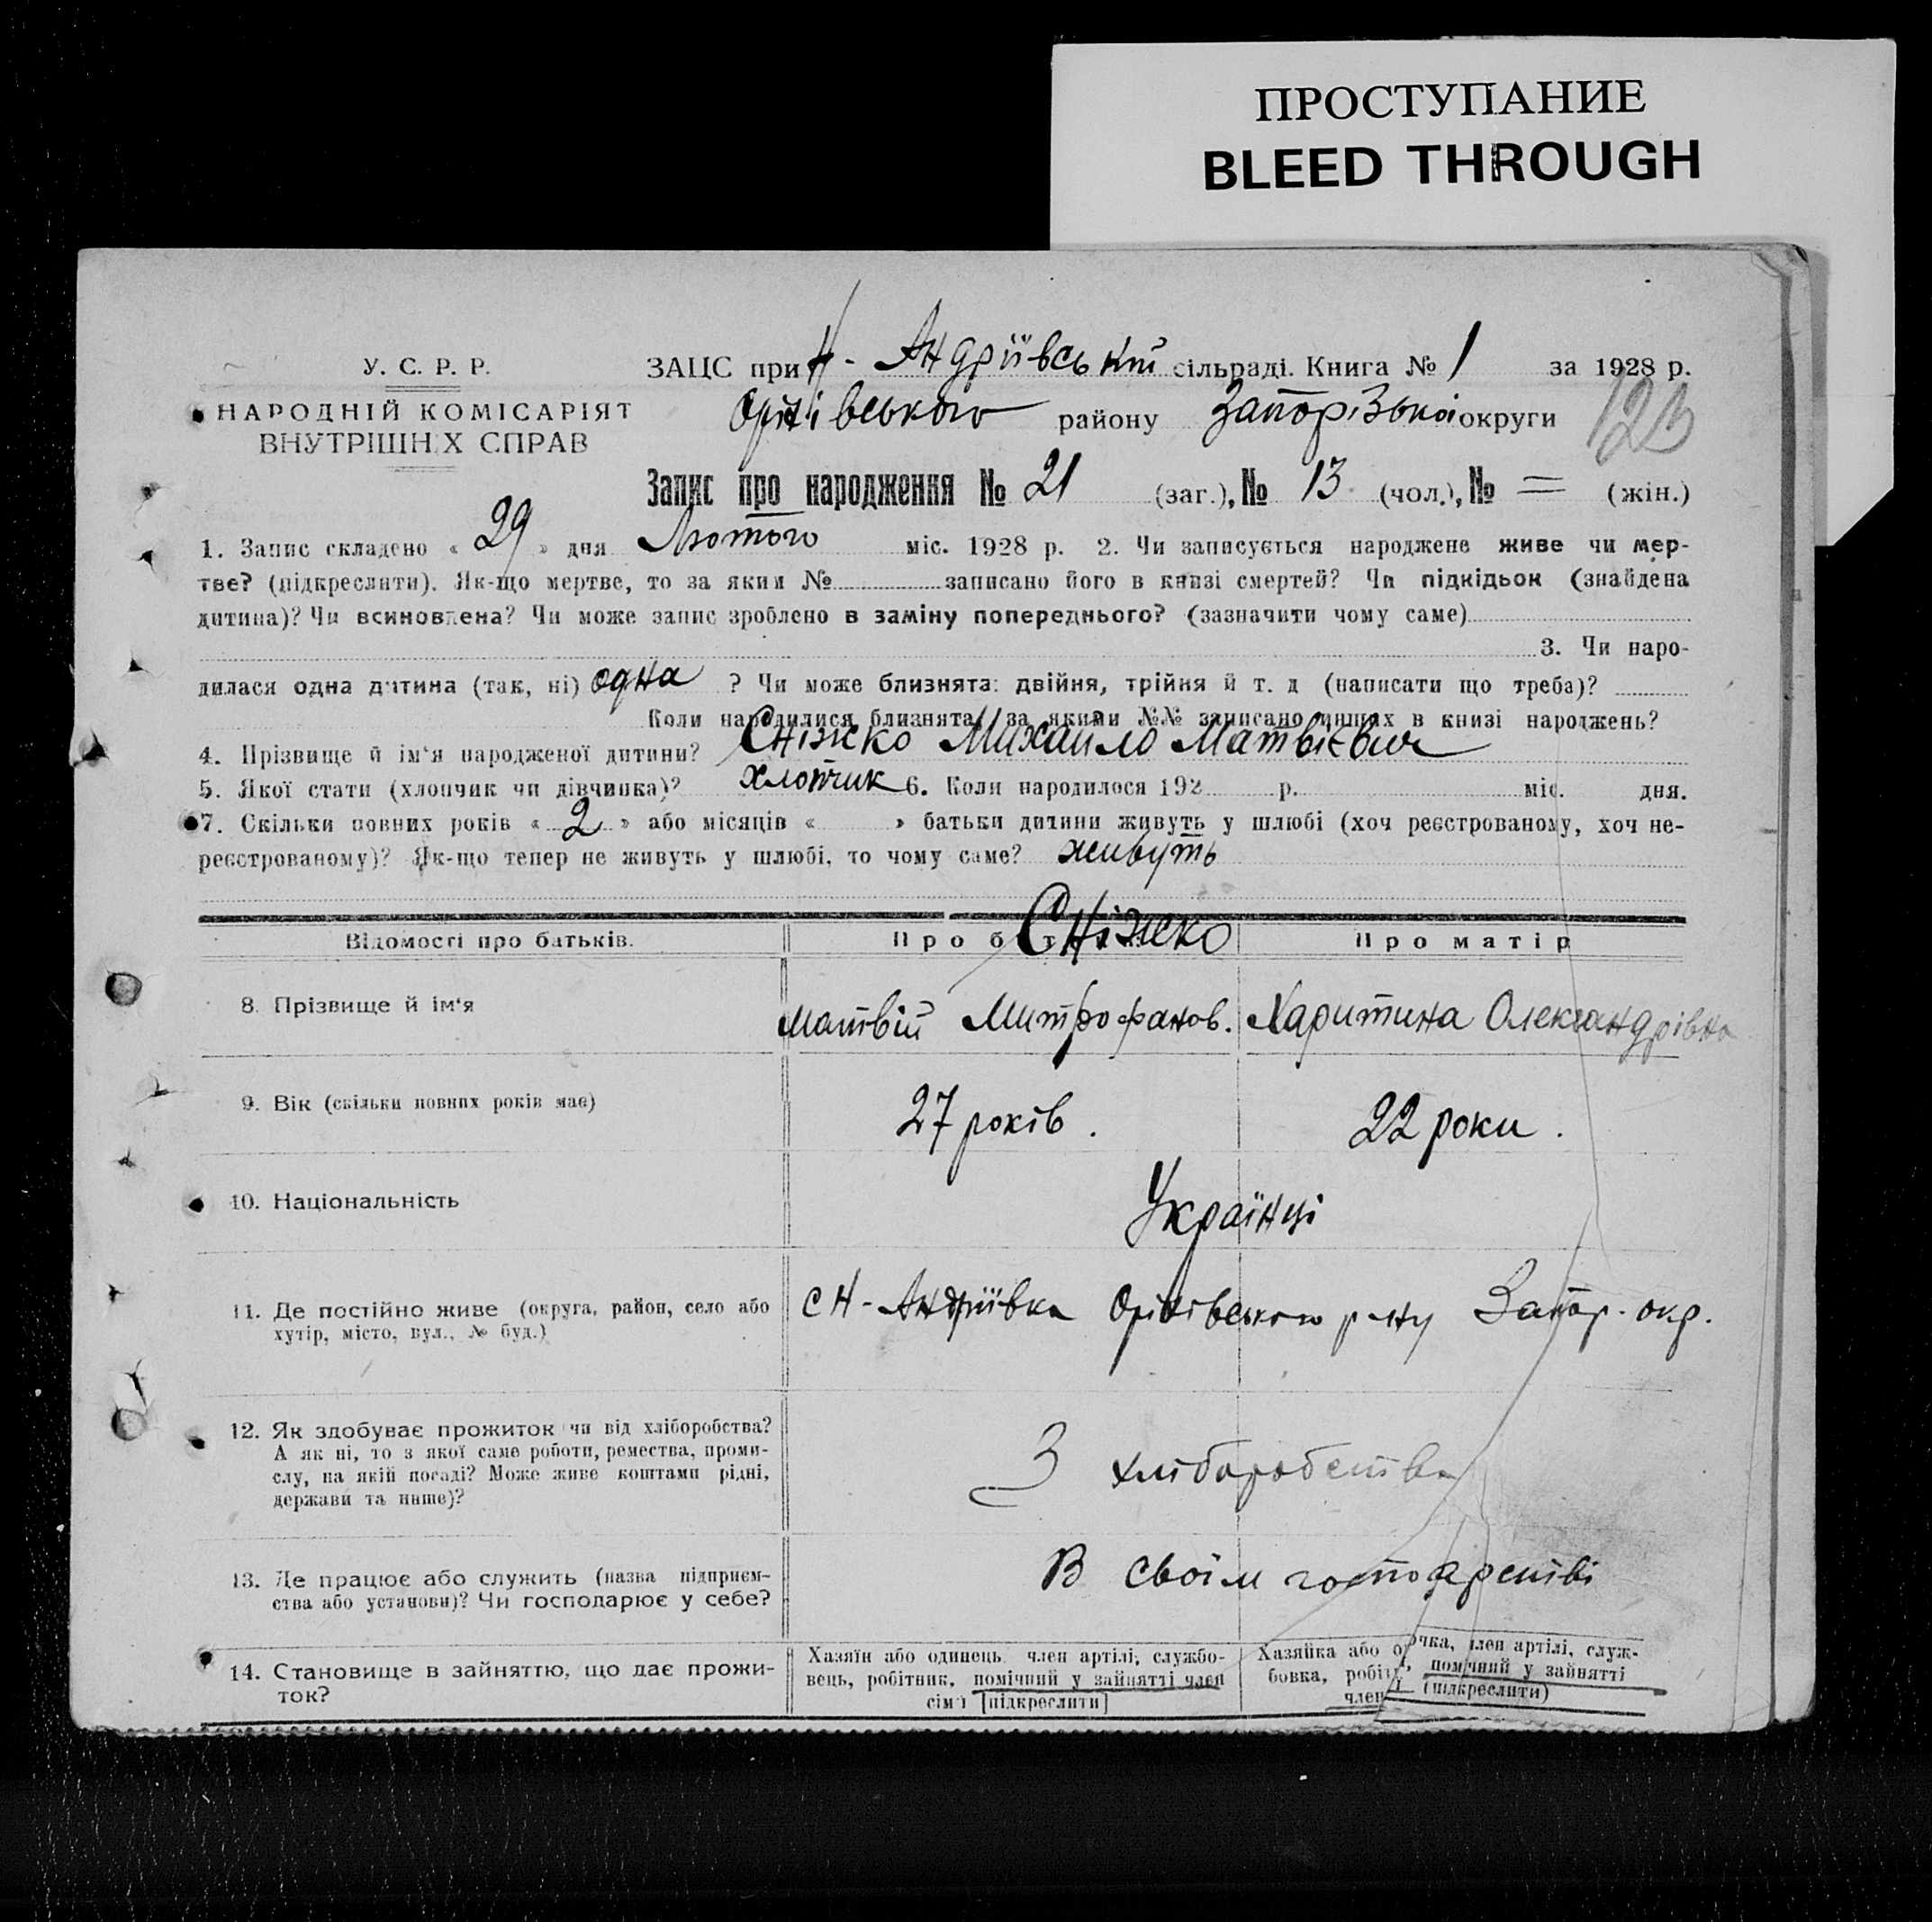 ПРОСТУПАНИЕ
BLEED THROUGH
У. С. Р. Р.
НАРОДНІЙ КОМІСАРІЯТ
ВНУТРІШНІХ СПРАВ
ЗАЦС при Н-Андріївській сільраді. Книга № 1 за 1928 р.
Оріхівського району Запорізької округи
123
Запис про народження № 21 (заг.), № 13 (чол.), № = (жін.)
1. Запис складено « 29 » дня Лютого міс. 1928 р. 2. Чи записується народжене живе чи мер-
тве? (підкреслити). Як-що мертве, то за яким № записано його в книзі смертей? Чи підкідьок (знайдена
дитина)? Чи всиновлена? Чи може запис зроблено в заміну попереднього? (зазначити чому саме)
3. Чи наро-
дилася одна дитина (так, ні) одна ? Чи може близнята: двійня, трійня й т. д (написати що треба)?
Коли народилися близнята, за якими №№ записано инших в книзі народжень?
4. Прізвище й ім'я народженої дитини? Сніжко Михайло Матвієвич
5. Якої стати (хлопчик чи дівчинка)? хлопчик 6. Коли народилося 192 р. міс. дня.
7. Скільки повних років « 2 » або місяців « » батьки дитини живуть у шлюбі (хоч реєстрованому, хоч не-
реєстрованому)? Як-що тепер не живуть у шлюбі, то чому саме? живуть
Відомості про батьків. Про батька Про матір
Сніжко
8. Прізвище й ім'я Матвій Митрофанов. Харитина Олександрівна
9. Вік (скільки повних років має) 27 років. 22 роки.
10. Національність Українці
11. Де постійно живе (округа, район, село або
хутір, місто, вул., № буд.) с Н-Андріївка Оріхівського р-ну Запор. окр.
12. Як здобуває прожиток чи від хліборобства?
А як ні, то з якої саме роботи, ремества, проми-
слу, на якій посаді? Може живе коштами рідні,
держави та инше)? З хліборобства
13. Де працює або служить (назва підприєм-
ства або установи)? Чи господарює у себе? В своїм господарстві
14. Становище в зайняттю, що дає прожи-
ток?
Хазяїн або одинець, член артілі, службо-
вець, робітник, помічний у зайнятті член
сім'ї [підкреслити]
Хазяйка або член артілі, служ-
бовка, помічний у зайнятті
член (підкреслити)